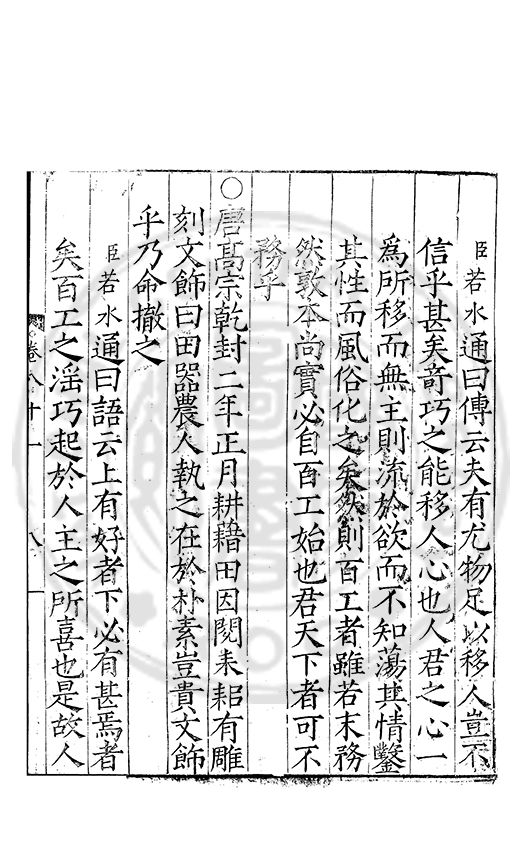 臣若水通曰傳云夫有尤物足以移人豈不
信乎甚矣奇巧之能移人心也人君之心一
爲所移而無主則流於欲而不知蕩其情鑿
其性而風俗化之矣然則百工者雖若末務
然敦本尚實必自百工始也君天下者可不
務乎
○唐高宗乾封二年正月耕藉田因閱耒耜有雕
刻文飾曰田器農人執之在於朴素豈貴文飾
乎乃命撤之
臣若水通曰語云上有好者下必有甚焉者
矣百工之滛巧起於人主之所喜也是故人
卷八十一 八